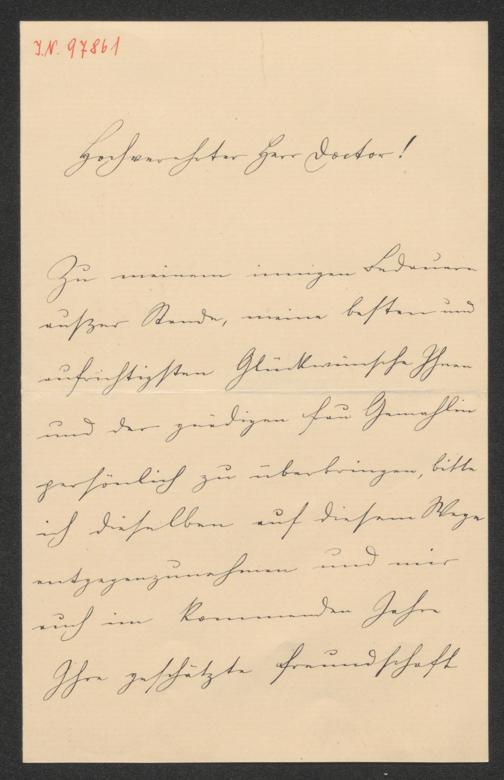 J.N. 97861
Hochverehrter Herr Doctor!
Zu meinem innigen Bedauern
außer Stande, meine besten und
aufrichtigsten Glückwünsche Ihnen
und der gnädigen Frau Gemahlin
persönlich zu überbringen, bitte
ich dieselben auf diesem Wege
entgegenzunehmen und mir
auch im kommenden Jahre
Ihre geschätzte Freundschaft